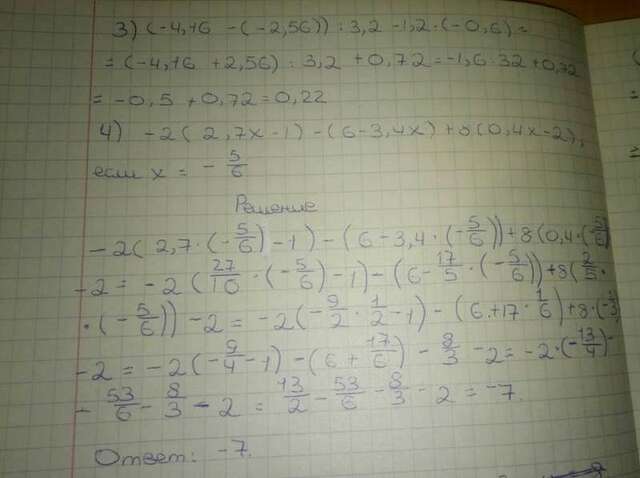 3) (-4,16 - (-2,56)) : 3,2 - 1,2 · (-0,6) =
= (-4,16 + 2,56) : 3,2 + 0,72 = -1,6 : 32 + 0,72
= -0,5 + 0,72 = 0,22
4) -2(2,7x - 1) - (6 - 3,4x) + 8(0,4x - 2),
если x = -5/6
Решение
-2(2,7 · (-5/6) - 1) - (6 - 3,4 · (-5/6)) + 8(0,4 · (-5/6)
-2 = -2(27/10 · (-5/6) - 1) - (6 - 17/5 · (-5/6)) + 8(2/5 ·
· (-5/6)) - 2 = -2(-9/2 · 1/2 - 1) - (6 + 17 · 1/6) + 8 · (-1/3)
-2 = -2(-9/4 - 1) - (6 + 17/6) - 8/3 - 2 = -2 · (-13/4) -
- 53/6 - 8/3 - 2 = 13/2 - 53/6 - 8/3 - 2 = -7.
Ответ: -7.